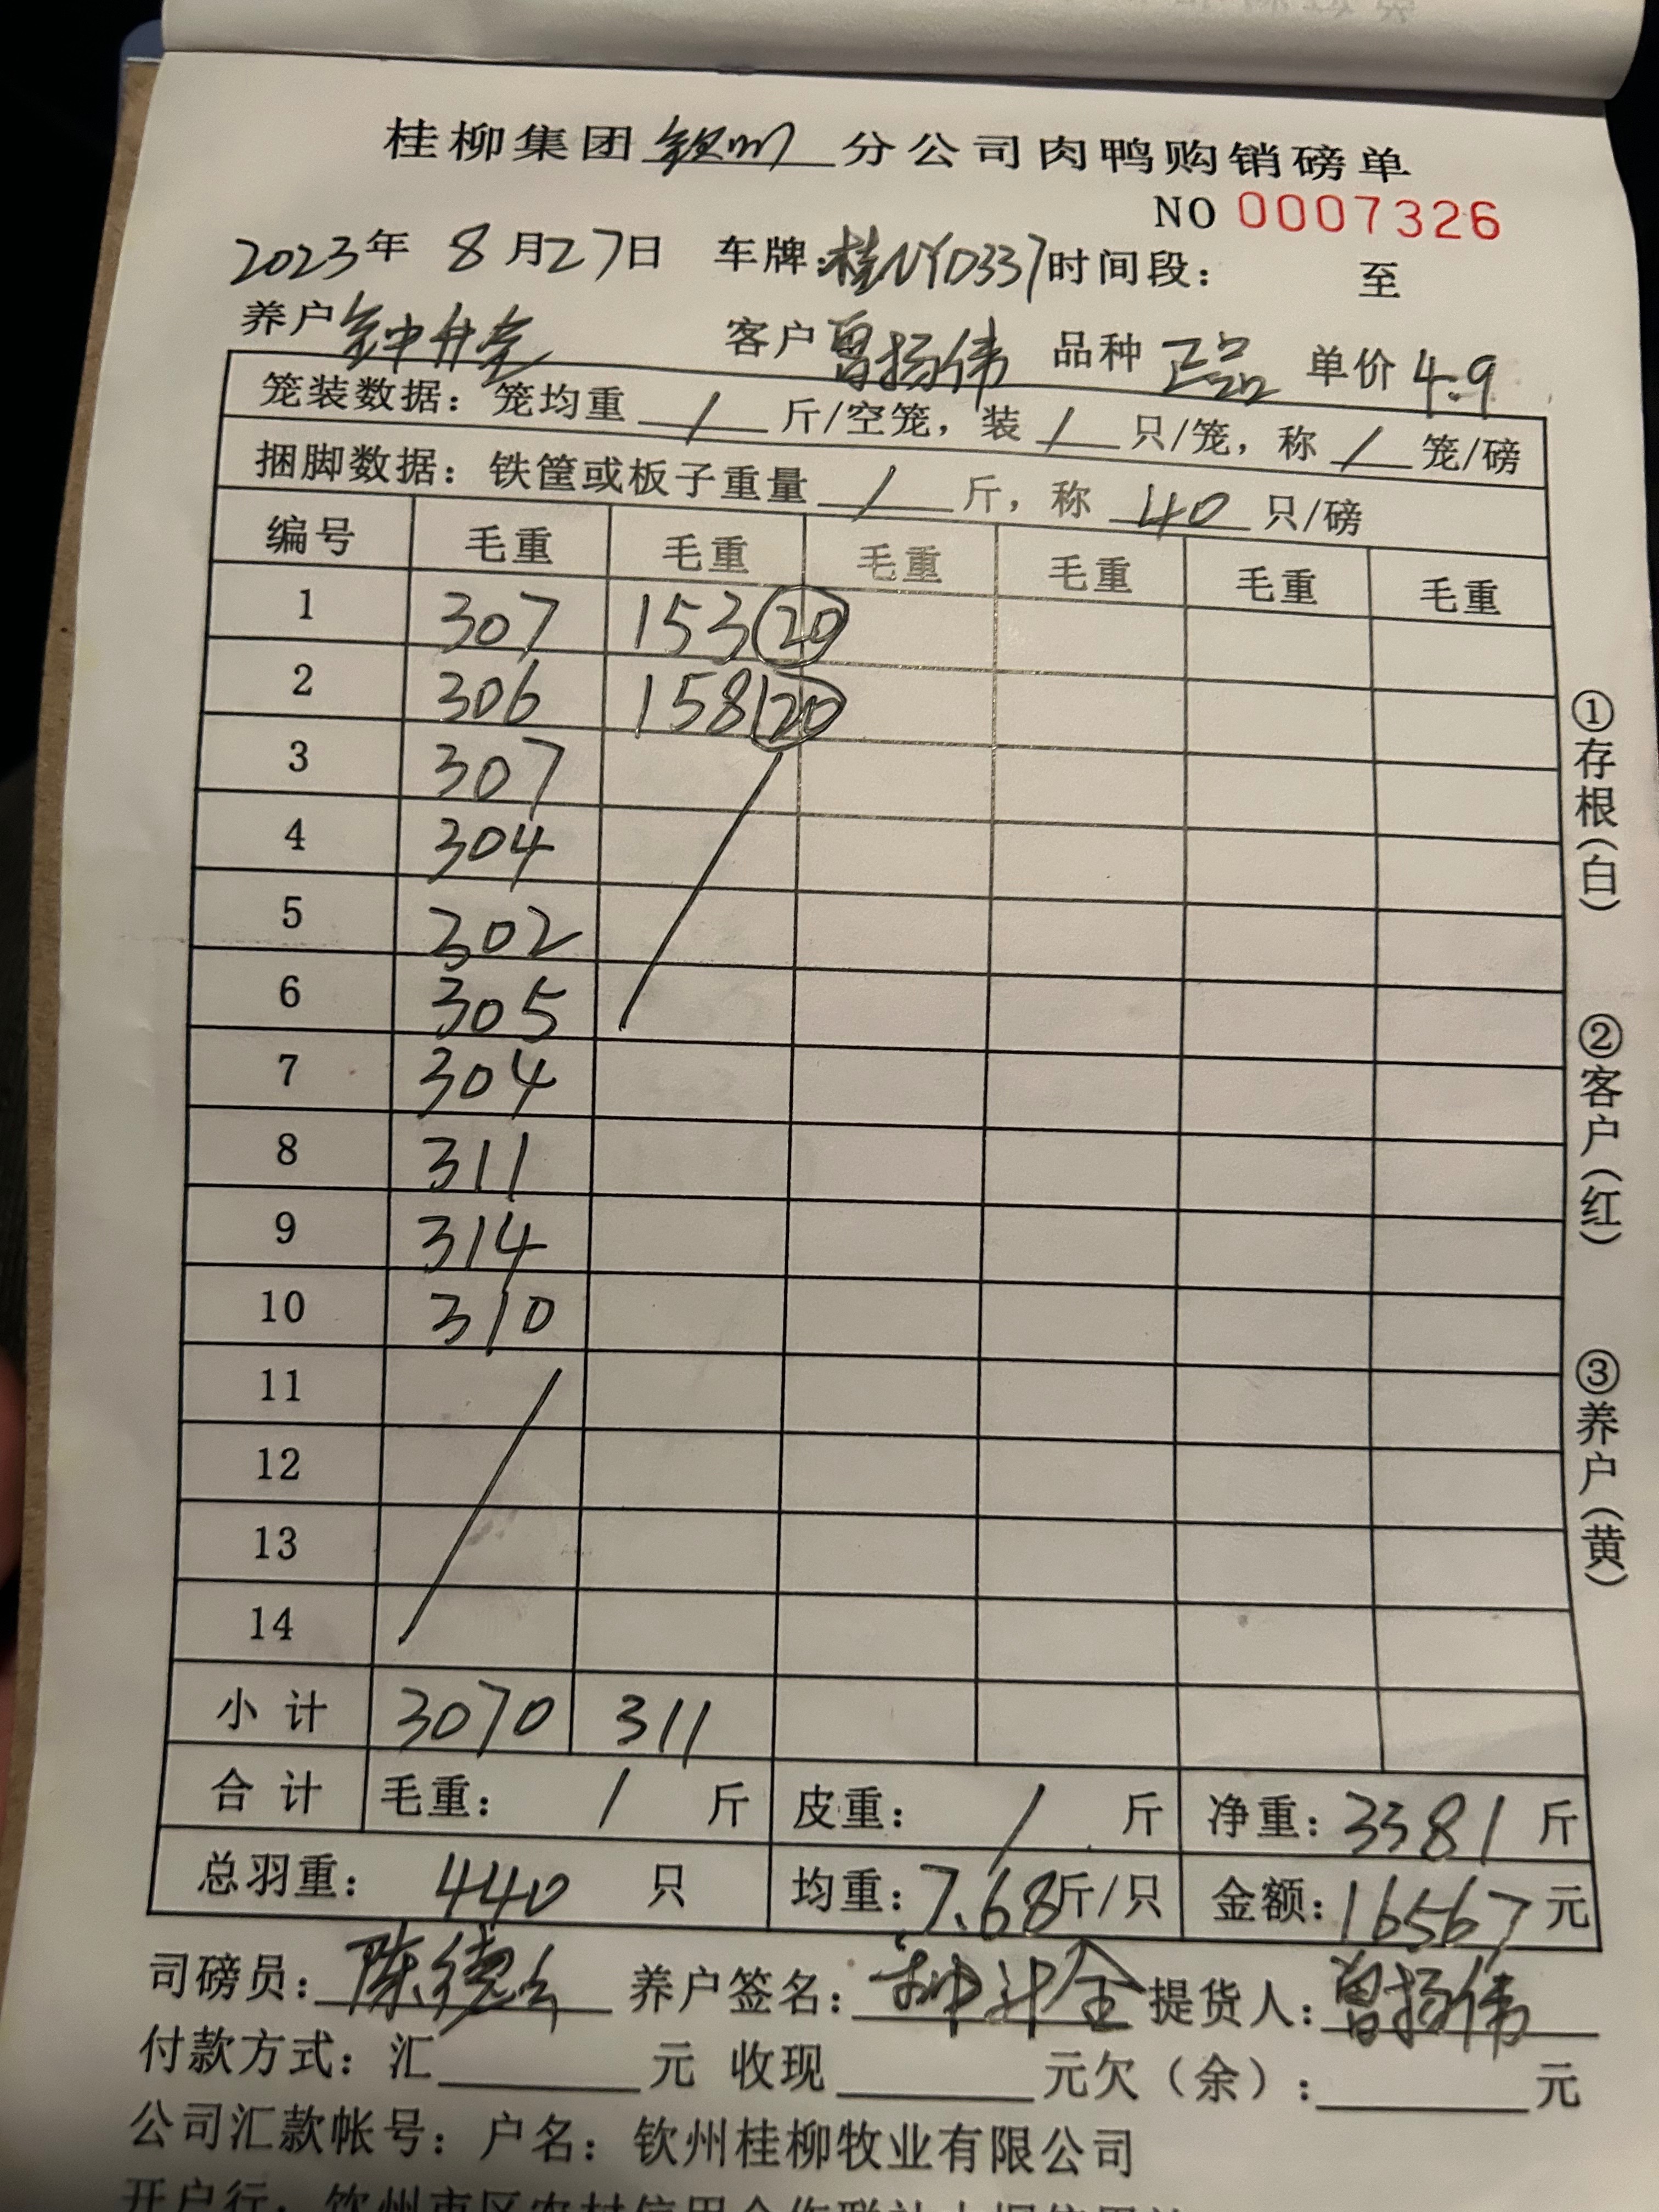 桂柳集团钦州分公司肉鸭购销磅单
NO 0007326
2023年 8月27日 车牌:桂NYD337时间段: 至
养户 钟 客户 曾扬伟 品种 正品 单价 4.9
笼装数据: 笼均重 / 斤/空笼, 装 / 只/笼, 称 / 笼/磅
捆脚数据: 铁筐或板子重量 / 斤, 称 40 只/磅
编号 毛重 毛重 毛重 毛重 毛重 毛重
1 307 153 20
2 306 158 20
3 307
4 304
5 302
6 305
7 304
8 311
9 314
10 310
11
12
13
14
小计 3070 311
合计 毛重: / 斤 皮重: / 斤 净重: 3381 斤
总羽重: 440 只 均重: 7.68斤/只 金额: 16567元
司磅员: 陈德 养户签名: 钟 提货人: 曾扬伟
付款方式: 汇 元 收现 元欠(余): 元
公司汇款帐号: 户名: 钦州桂柳牧业有限公司
开户行: 钦州市区农村信用合作联社
①存根(白)
②客户(红)
③养户(黄)